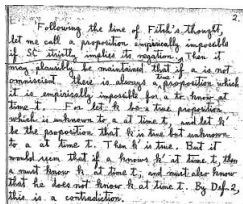 2
Following the line of Fitch's thought,
let me call a proposition empirically impossible
if SC strictly implies its negation. Then it
may plausibly be maintained that if a is not
omniscient there is always a proposition which
it is empirically impossible for a to know at
time t. For let k be a true proposition
which is unknown to a at time t, and let k'
be the proposition that k is true but unknown
to a at time t. Then k' is true. But it
would seem that if a knows k' at time t, then
a must know k at time t, and must also know
that he does not know k at time t. By Def. 2,
this is a contradiction.